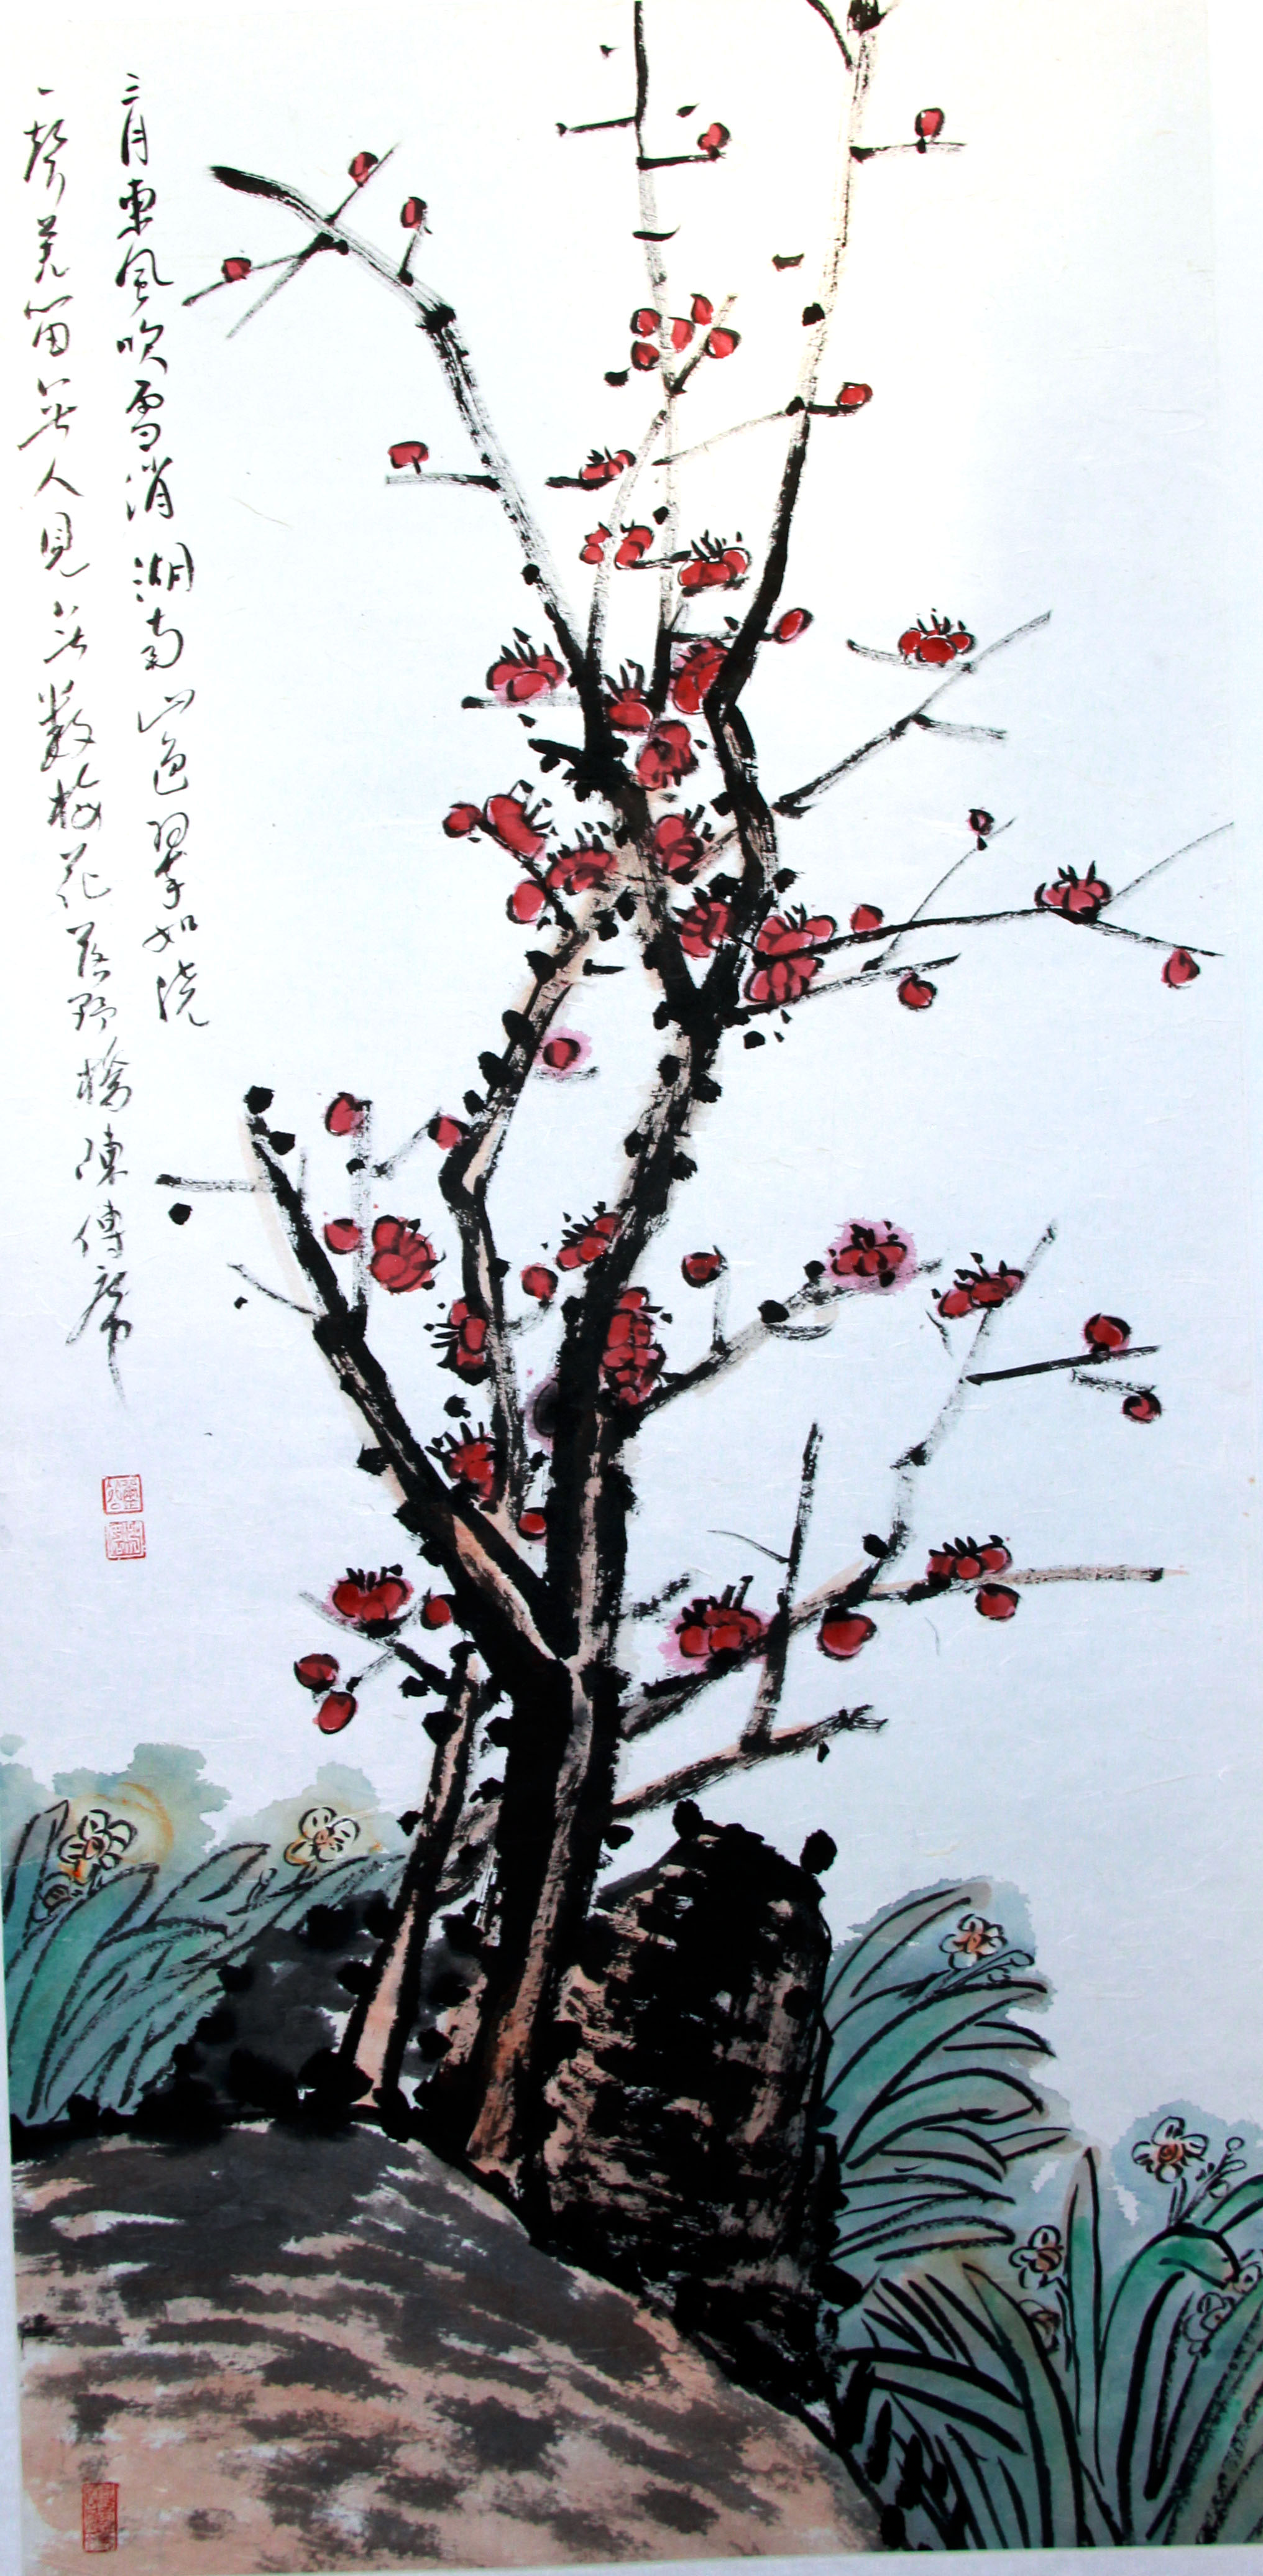 三月東風吹雪消湖南山色翠如澆
一聲羌笛無人見無數梅花落野橋陳傳席